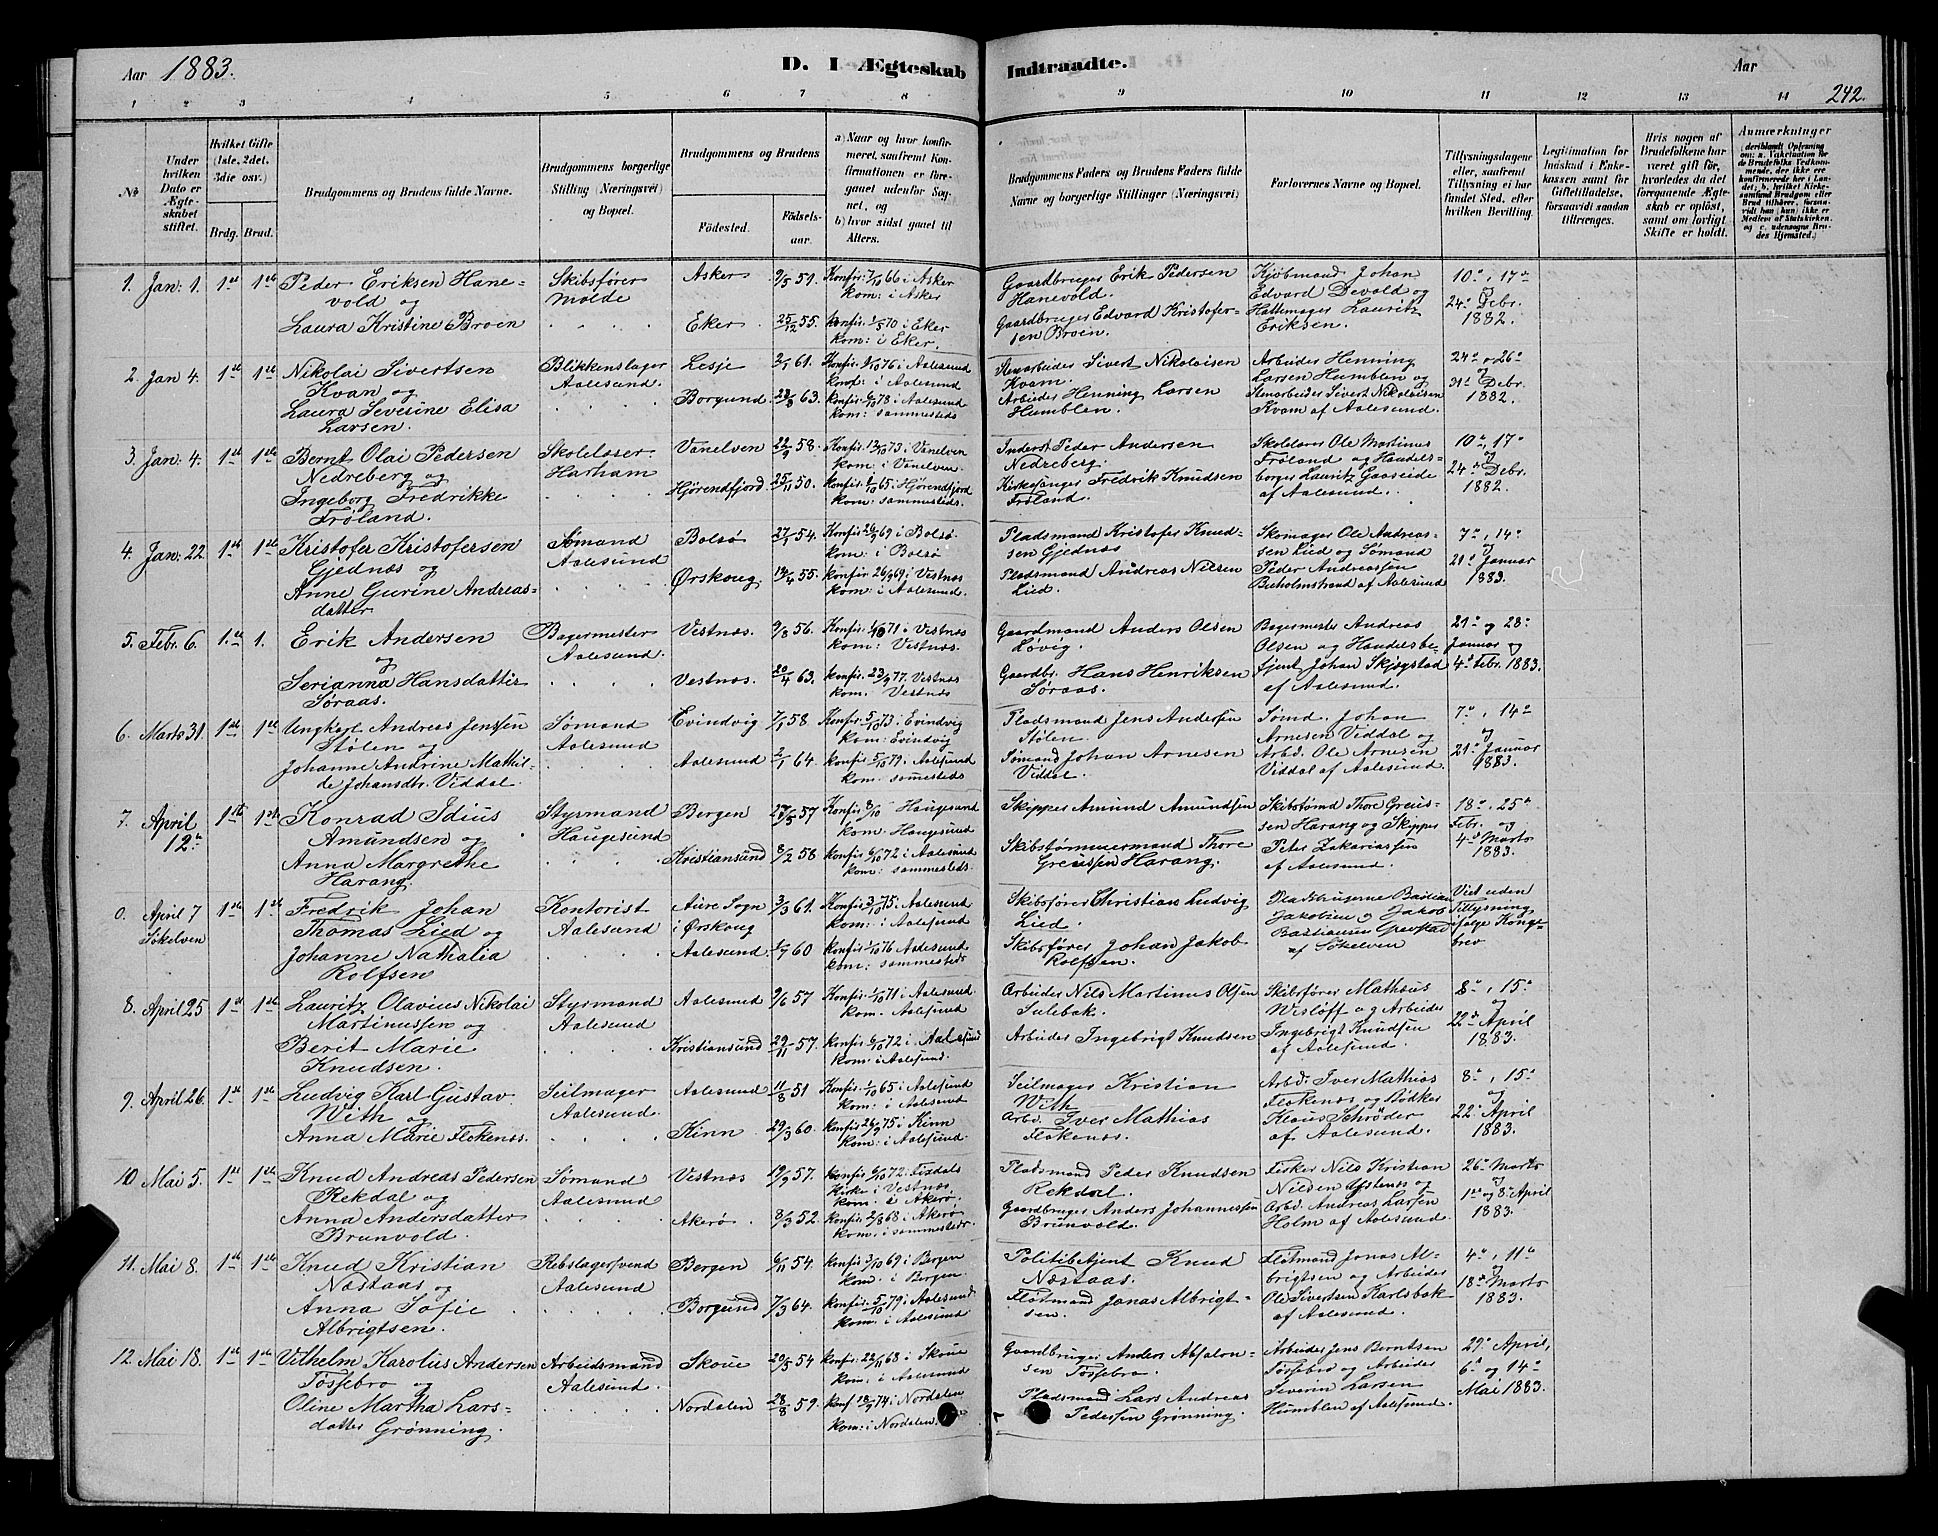 Aar 1883.
D. I Ægteskab Indtraadte.
Aar
242.
1 2 3 4 5 6 7 8 9 10 11 12 13 14
No
Under hvilken Dato er Ægteskabet stiftet.
Hvilket Gifte (1ste, 2det, 3die osv.)
Brdg. Brud.
Brudgommens og Brudens fulde Navne.
Brudgommens borgerlige Stilling (Næringsvei) og Bopæl.
Brudgommens og Brudens
Fødested. Fødselsaar.
a) Naar og hvor konfirmeret, saafremt Konfirmationen er foregaaet udenfor Sognet, og b) hvor sidst gaaet til Alters.
Brudgommens Faders og Brudens Faders fulde Navne og borgerlige Stillinger (Næringsvei)
Forlovernes Navne og Bopæl.
Tillysningsdagene eller, saafremt Tillysning ei har fundet Sted, efter hvilken Bevilling.
Legitimation for Indskud i Enkekassen samt for Giftetilladelse, forsaavidt saadan tiltrænges.
Hvis nogen af Brudefolkene har været gift før, hvorledes da det foregaaende Ægteskab er opløst, samt om lovligt Skifte er holdt.
Anmærkninger
1. Jan: 1. 1ste 1ste Peder Eriksen Hanevold og Skibsfører Molde Asker 9/5 59. Konfir: 7/10 66 i Asker kom: i Asker Gaardbruger Erik Pedersen Hanevold. Kjøbmand Johan Edvard Devold og Hattemager Lauritz Eriksen. 10de, 17de og 24de Debr. 1882.
Laura Kristine Broen Eker 25/12 55. konfir: 1/5 70 i Eker kom: i Eker. Gaardbruger Edvard Kristofersen Broen.
2. Jan 4. 1ste 1ste Nikolai Sivertsen Kvam og Blikkenslager Aalesund. Lesje 2/1 61. Konfir: 1/10 76 i Aalesund kom: i Aalesund Stenarbeider Sivert Nikolaisen Kvam. Arbeider Henning Larsen Humblen og Stenarbeider Sivert Nikolaisen Kvam af Aalesund. 24de, 26de og 31te Debr. 1882.
Laura Severine Elisa Larsen. Borgund 23/8 63. konfir: 6/10 78 i Aalesund kom: sammesteds Arbeider Henning Larsen Humblen.
3. Jan: 4. 1ste 1ste Bernt Olai Pedersen Nedreberg og Skolelærer Harham Vanelven 22/9 58. Konfir: 12/10 73 i Vanelven kom i Vanelven. Inderst Peder Andersen Nedreberg. Skolelærer Ole Martinus Frøland og Handelsborger Lauritz Gaaseide af Aalesund. 10de, 17de og 24de Debr. 1882.
Ingeborg Fredrikke Frøland. Hjørendfjord 25/11 50. konfir: 1/10 65 i Hjørendfjord kom: sammesteds. Kirkesanger Fredrik Knudsen Frøland.
4. Jan: 22. 1ste 1ste Kristofer Kristofersen Gjednæs og Sømand Aalesund Bolsø 27/1 54. Konfir: 26/9 69 i Bolsø kom: i Bolsø Pladsmand Kristofer Knudsen Gjednæs Skomager Ole Andreassen Lied og Sømand Peder Andreassen Buholmstrand af Aalesund 7de, 14de og 21de Januar 1883.
Anne Gurine Andreasdatter Ørskoug 14/4 55. konfir 26/9 69 i Vestnæs kom: i Aalesund. Pladsmand Andreas Nilsen Lied.
5. Febr. 6. 1ste 1. Erik Andersen og Bagermester Aalesund. Vestnæs. 9/8 56. Konfir: 1/10 71 i Vestnæs kom: Vestnæs. Gaardmand Anders Olsen Løvig. Bagermester Andreas Olsen og Handelsbetjent Johan Skjøystad af Aalesund. 21de og 28de Januar og 4de Febr. 1883.
Serianna Hansdatter Søraas. Vestnæs. 20/4 63. konfir: 23/9 77. Vestnæs kom. Vestnæs Gaardbr. Hans Henriksen Søraas.
6. Marts 31. 1ste 1ste Ungkarl Andreas Jenssen Stølen og Sømand Aalesund Evindvig 7/1 58. Konfir: 5/10 73. i Evindvig kom: Evindvig Pladsmand Jens Andersen Stølen. Sømd. Johan Arnesen Viddal og Arbd. Ole Arnesen Viddal af Aalesund. 7de, 14de og 21de Januar 1883.
Johanne Andrine Mathilde Johansdtr. Viddal. Aalesund 2/1 64. konfir: 5/10 79. i Aalesund kom: sammesteds Sømand Johan Arnesen Viddal.
7. April 12te 1ste 1ste Konrad Idius Amundsen og Styrmand Haugesund Bergen 27/5 57 Konfir: 8/10 Haugesund kom: Haugesund Skipper Amund Amundsen Skibstømd Thore Greussen Harang og Skipper Peter Zakariassen af Aalesund. 18de, 25de Febr. og 4de Marts 1883.
Anna Margrethe Harang. Kristiansund 8/2 58 konfir: 6/10 72 i Aalesund kom: sammesteds. Skibstømmermand Thore Greussen Harang.
0. April 7 Søkelven 1ste 1ste Fredrik Johan Thomas Lied og Kontorist Aalesund Aure Sogn i Ørskoug 3/3 61. Konfir: 3/10 75. i Aalesund kom: i Aalesund Skibsfører Christian Ludvig Lied. Bastian Jakobsen og Jakob Bastiansen af Søkelven Viet uden Tillysning ifølge Kongebrev
Johanne Nathalia Rolfsen Aalesund. 1/7 60 konfir: 1/10 76 Aalesund kom: sammesteds Skibsfører Johan Jakob Rolfsen.
8. April 25 1ste 1ste Lauritz Olavius Nikolai Martinussen og Styrmand Aalesund Aalesund 9/6 57 Konfir: 1/10 71 i Aalesund kom. Aalesund Arbeider Nils Martinus Olsen Sulebak. Skibsfører Mathias Wisløff og Arbeider Ingebrigt Knudsen af Aalesund. 8de, 15de og 22de April 1883.
Berit Marie Knudsen. Kristiansund 29/11 57. konfir: 6/10 72 i Aalesund kom: i Aalesund. Arbeider Ingebrigt Knudsen
9. April 26. 1ste 1ste Ludvig Karl Gustav With og Seilmager Aalesund. Aalesund 11/8 51 Konfir: 1/10 65 i Aalesund kom: i Aalesund Seilmager Kristian With Arbd: Iver Mathias Flokenæs og Bødker Klaus Schrøder af Aalesund. 8de, 15de og 22de April 1883.
Anna Marie Flokenæs. Kinn 29/3 60. konfir: 26/9 75 i Kinn kom: i Aalesund. Arbd. Iver Mathias Flokenæs.
10 Mai 5. 1ste 1ste Knud Andreas Pedersen Rekdal og Sømand Aalesund Vestnæs 19/9 57. konfir: 6/10 72. Fixdals Kirke i Vestnæs kom. i Akerø. Pladsmand Peder Knudsen Rekdal. Fisker Nils Kristian Nilsen Ystenæs og Arbd. Andreas Larsen Holm af Aalesund. 26de Marts og 1ste og 8de April 1883.
Anna Andersdatter Brunvold. Akerø. 8/3 52. konfir: 2/8 68 i Akerø kom: i sammesteds. Gaardbruger Anders Johannessen Brunvold.
11. Mai 8. 1ste 1ste Knud Kristian Næstaas og Rebslagersvend Aalesund Bergen 6/11 54. konfir: 3/10 69 i Bergen kom. i Bergen Politibetjent Knud Næstaas. Flotmand Jonas Albrigtsen og Arbeider Ole Sivertsen Karlsbak af Aalesund. 4de, 11te og 18de Marts 1883.
Anna Sofie Albrigtsen. Borgund 7/3 64. konfir: 5/10 79 i Aalesund kom. i Aalesund Flotmand Jonas Albrigtsen.
12. Mai 18. 1ste 1ste Vilhelm Karolus Andersen Tøssebro og Arbeidsmand Aalesund. Skoue 20/5 54 konfir: 22/11 68 i Skoue kom: i Aalesund Gaardbruger Anders Absalonsen Tøssebro. Arbeider Jens Berntsen Tøssebro og Arbeider Severin Larsen Humblen af Aalesund. 29de April, 6te og 14de Mai 1883.
Oline Martha Larsdatter Grønning. Nordalen 28/8 59. konf 18/9 74 i Nordalen kom: i Nordalen. Pladsmand Lars Andreas Pedersen Grønning.